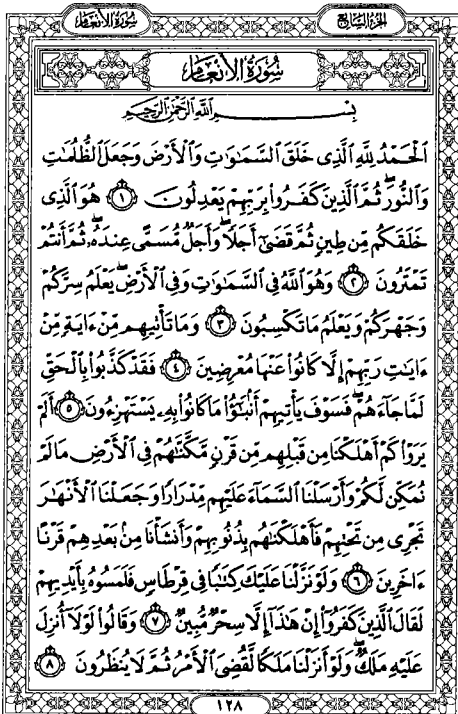 سُورَةُ الأَنْعَام
الجُزْءُ السَّابِعُ
سُورَةُ الأَنْعَام
بِسْمِ اللَّهِ الرَّحْمَٰنِ الرَّحِيمِ
ٱلْحَمْدُ لِلَّهِ ٱلَّذِى خَلَقَ ٱلسَّمَٰوَٰتِ وَٱلْأَرْضَ وَجَعَلَ ٱلظُّلُمَٰتِ
وَٱلنُّورَۖ ثُمَّ ٱلَّذِينَ كَفَرُوا۟ بِرَبِّهِمْ يَعْدِلُونَ ١ هُوَ ٱلَّذِى
خَلَقَكُم مِّن طِينٍ ثُمَّ قَضَىٰٓ أَجَلًاۖ وَأَجَلٌ مُّسَمًّى عِندَهُۥۖ ثُمَّ أَنتُمْ
تَمْتَرُونَ ٢ وَهُوَ ٱللَّهُ فِى ٱلسَّمَٰوَٰتِ وَفِى ٱلْأَرْضِۖ يَعْلَمُ سِرَّكُمْ
وَجَهْرَكُمْ وَيَعْلَمُ مَا تَكْسِبُونَ ٣ وَمَا تَأْتِيهِم مِّنْ ءَايَةٍ مِّنْ
ءَايَٰتِ رَبِّهِمْ إِلَّا كَانُوا۟ عَنْهَا مُعْرِضِينَ ٤ فَقَدْ كَذَّبُوا۟ بِٱلْحَقِّ
لَمَّا جَآءَهُمْۖ فَسَوْفَ يَأْتِيهِمْ أَنۢبَٰٓؤُا۟ مَا كَانُوا۟ بِهِۦ يَسْتَهْزِءُونَ ٥ أَلَمْ
يَرَوْا۟ كَمْ أَهْلَكْنَا مِن قَبْلِهِم مِّن قَرْنٍ مَّكَّنَّٰهُمْ فِى ٱلْأَرْضِ مَا لَمْ
نُمَكِّن لَّكُمْ وَأَرْسَلْنَا ٱلسَّمَآءَ عَلَيْهِم مِّدْرَارًا وَجَعَلْنَا ٱلْأَنْهَٰرَ
تَجْرِى مِن تَحْتِهِمْ فَأَهْلَكْنَٰهُم بِذُنُوبِهِمْ وَأَنشَأْنَا مِنۢ بَعْدِهِمْ قَرْنًا
ءَاخَرِينَ ٦ وَلَوْ نَزَّلْنَا عَلَيْكَ كِتَٰبًا فِى قِرْطَاسٍ فَلَمَسُوهُ بِأَيْدِيهِمْ
لَقَالَ ٱلَّذِينَ كَفَرُوٓا۟ إِنْ هَٰذَآ إِلَّا سِحْرٌ مُّبِينٌ ٧ وَقَالُوا۟ لَوْلَآ أُنزِلَ
عَلَيْهِ مَلَكٌۖ وَلَوْ أَنزَلْنَا مَلَكًا لَّقُضِىَ ٱلْأَمْرُ ثُمَّ لَا يُنظَرُونَ ٨
١٢٨